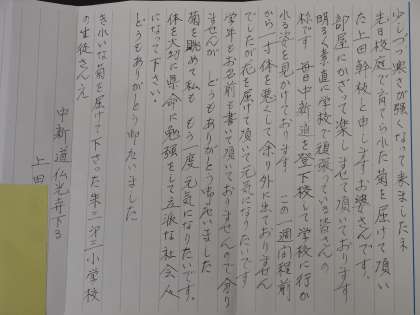 少しづつ寒さが強くなって来ましたネ
先日校庭で育てられた菊を届けて頂い
た上田幹枝と申しますお婆さんです。
部屋にかざって楽しませて頂いております
明るく素直に学校で頑張っている皆さんの
校です 毎日中新道を登下校して学校に行か
れる姿を見かけております この一週間程前
から一寸体を悪くして余り外に出ておりません
でしたが花を届けて頂いて元気になりたいです
学年もお名前も書いて頂いておりませんので余り
ませんが どうもありがとうございました
菊を眺めて私も もう一度元気になりたいです。
体を大切に懸命に勉強をして立派な社会人
になって下さい。
どうもありがとうございました
きれいな菊を届けて下さった朱二 第三小学校
の生徒さんえ
中新道仏光寺下る
上田